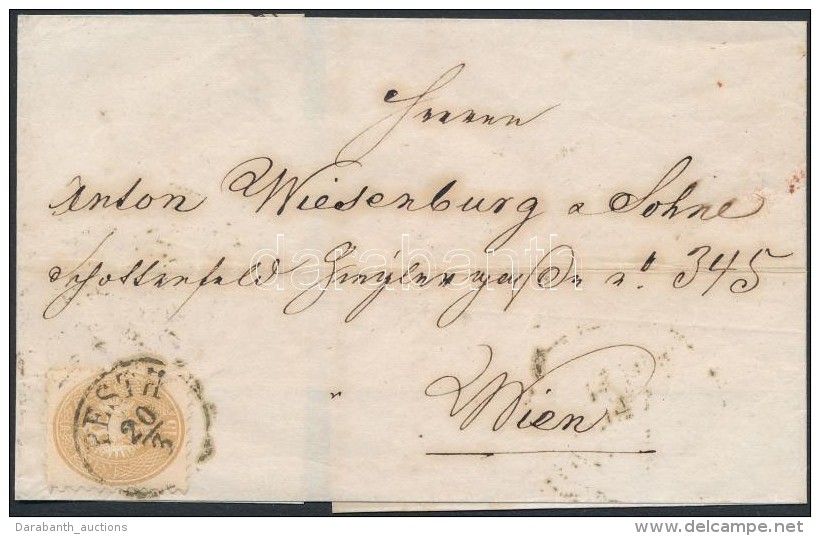 Herren
Anton Wiesenburg & Sohne
Schottenfeld Zieglergasse No. 345
Wien
PESTH
20/3
darabanth
Darabanth_auctions
www.delcampe.net